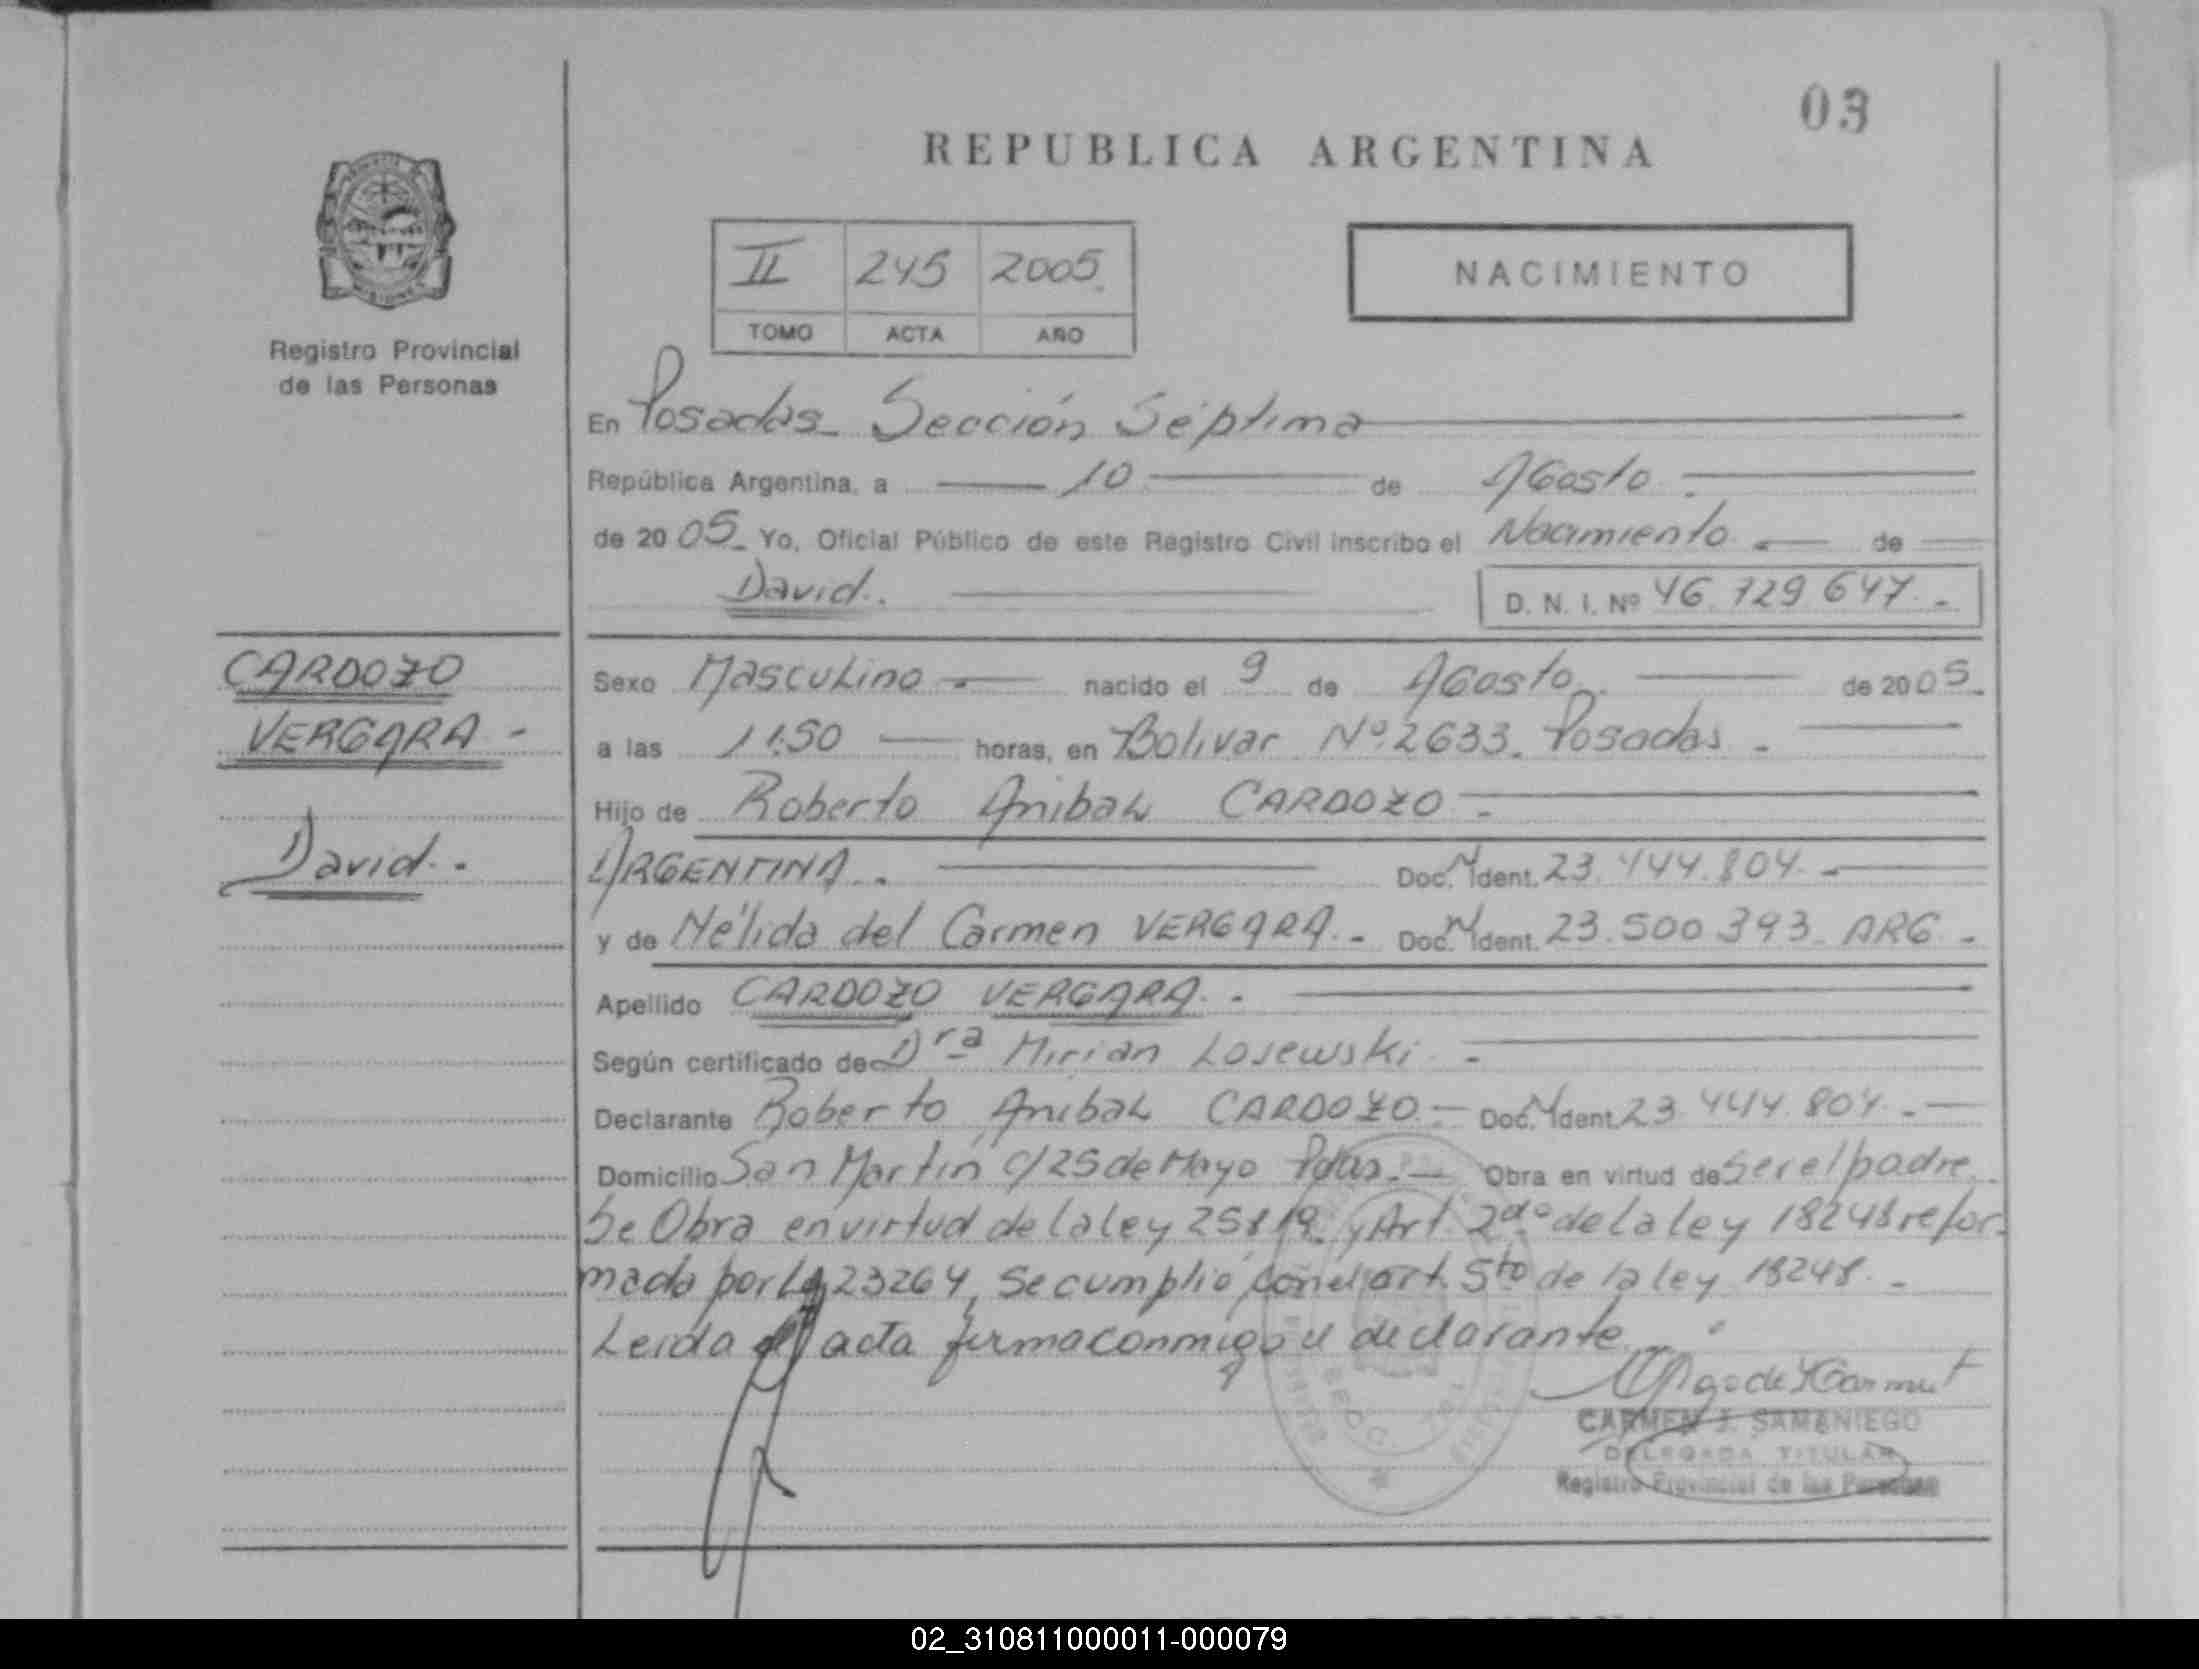 03
REPUBLICA ARGENTINA
II 245 2005.
TOMO ACTA AÑO
NACIMIENTO
Registro Provincial
de las Personas
En Posadas_ Sección Séptima
República Argentina, a 10 de Agosto.
de 2005_ Yo, Oficial Público de este Registro Civil inscribo el Nacimiento.- de
David.. D. N. I. Nº 46.729.647.-
CARDOZO
VERGARA -
David. .
Sexo Masculino.- nacido el 9 de Agosto. de 2005.
a las 11:50 horas, en Bolivar Nº 2633. Posadas.-
Hijo de Roberto Anibal CARDOZO.-
ARGENTINA.. Doc. N Ident. 23.444.804.-
y de Nélida del Carmen VERGARA.- Doc. N Ident. 23.500.393. ARG.-
Apellido CARDOZO VERGARA..
Según certificado de Dra Mirian Losewski.-
Declarante Roberto Anibal CARDOZO.- Doc. N Ident. 23.444.804.-
Domicilio San Martín c/25 de Mayo Pdas.- Obra en virtud de Ser el padre.
Se Obra en virtud de la ley 25819 y Art. 2do de la ley 18248 refor-
mada por La 23264, Se cumplió con el art. 5to de la ley 18248.-
Leida el acta firma conmigo el declarante.
CARMEN J. SAMANIEGO
DELEGADA TITULAR
Registro Provincial de las Personas
02_310811000011-000079